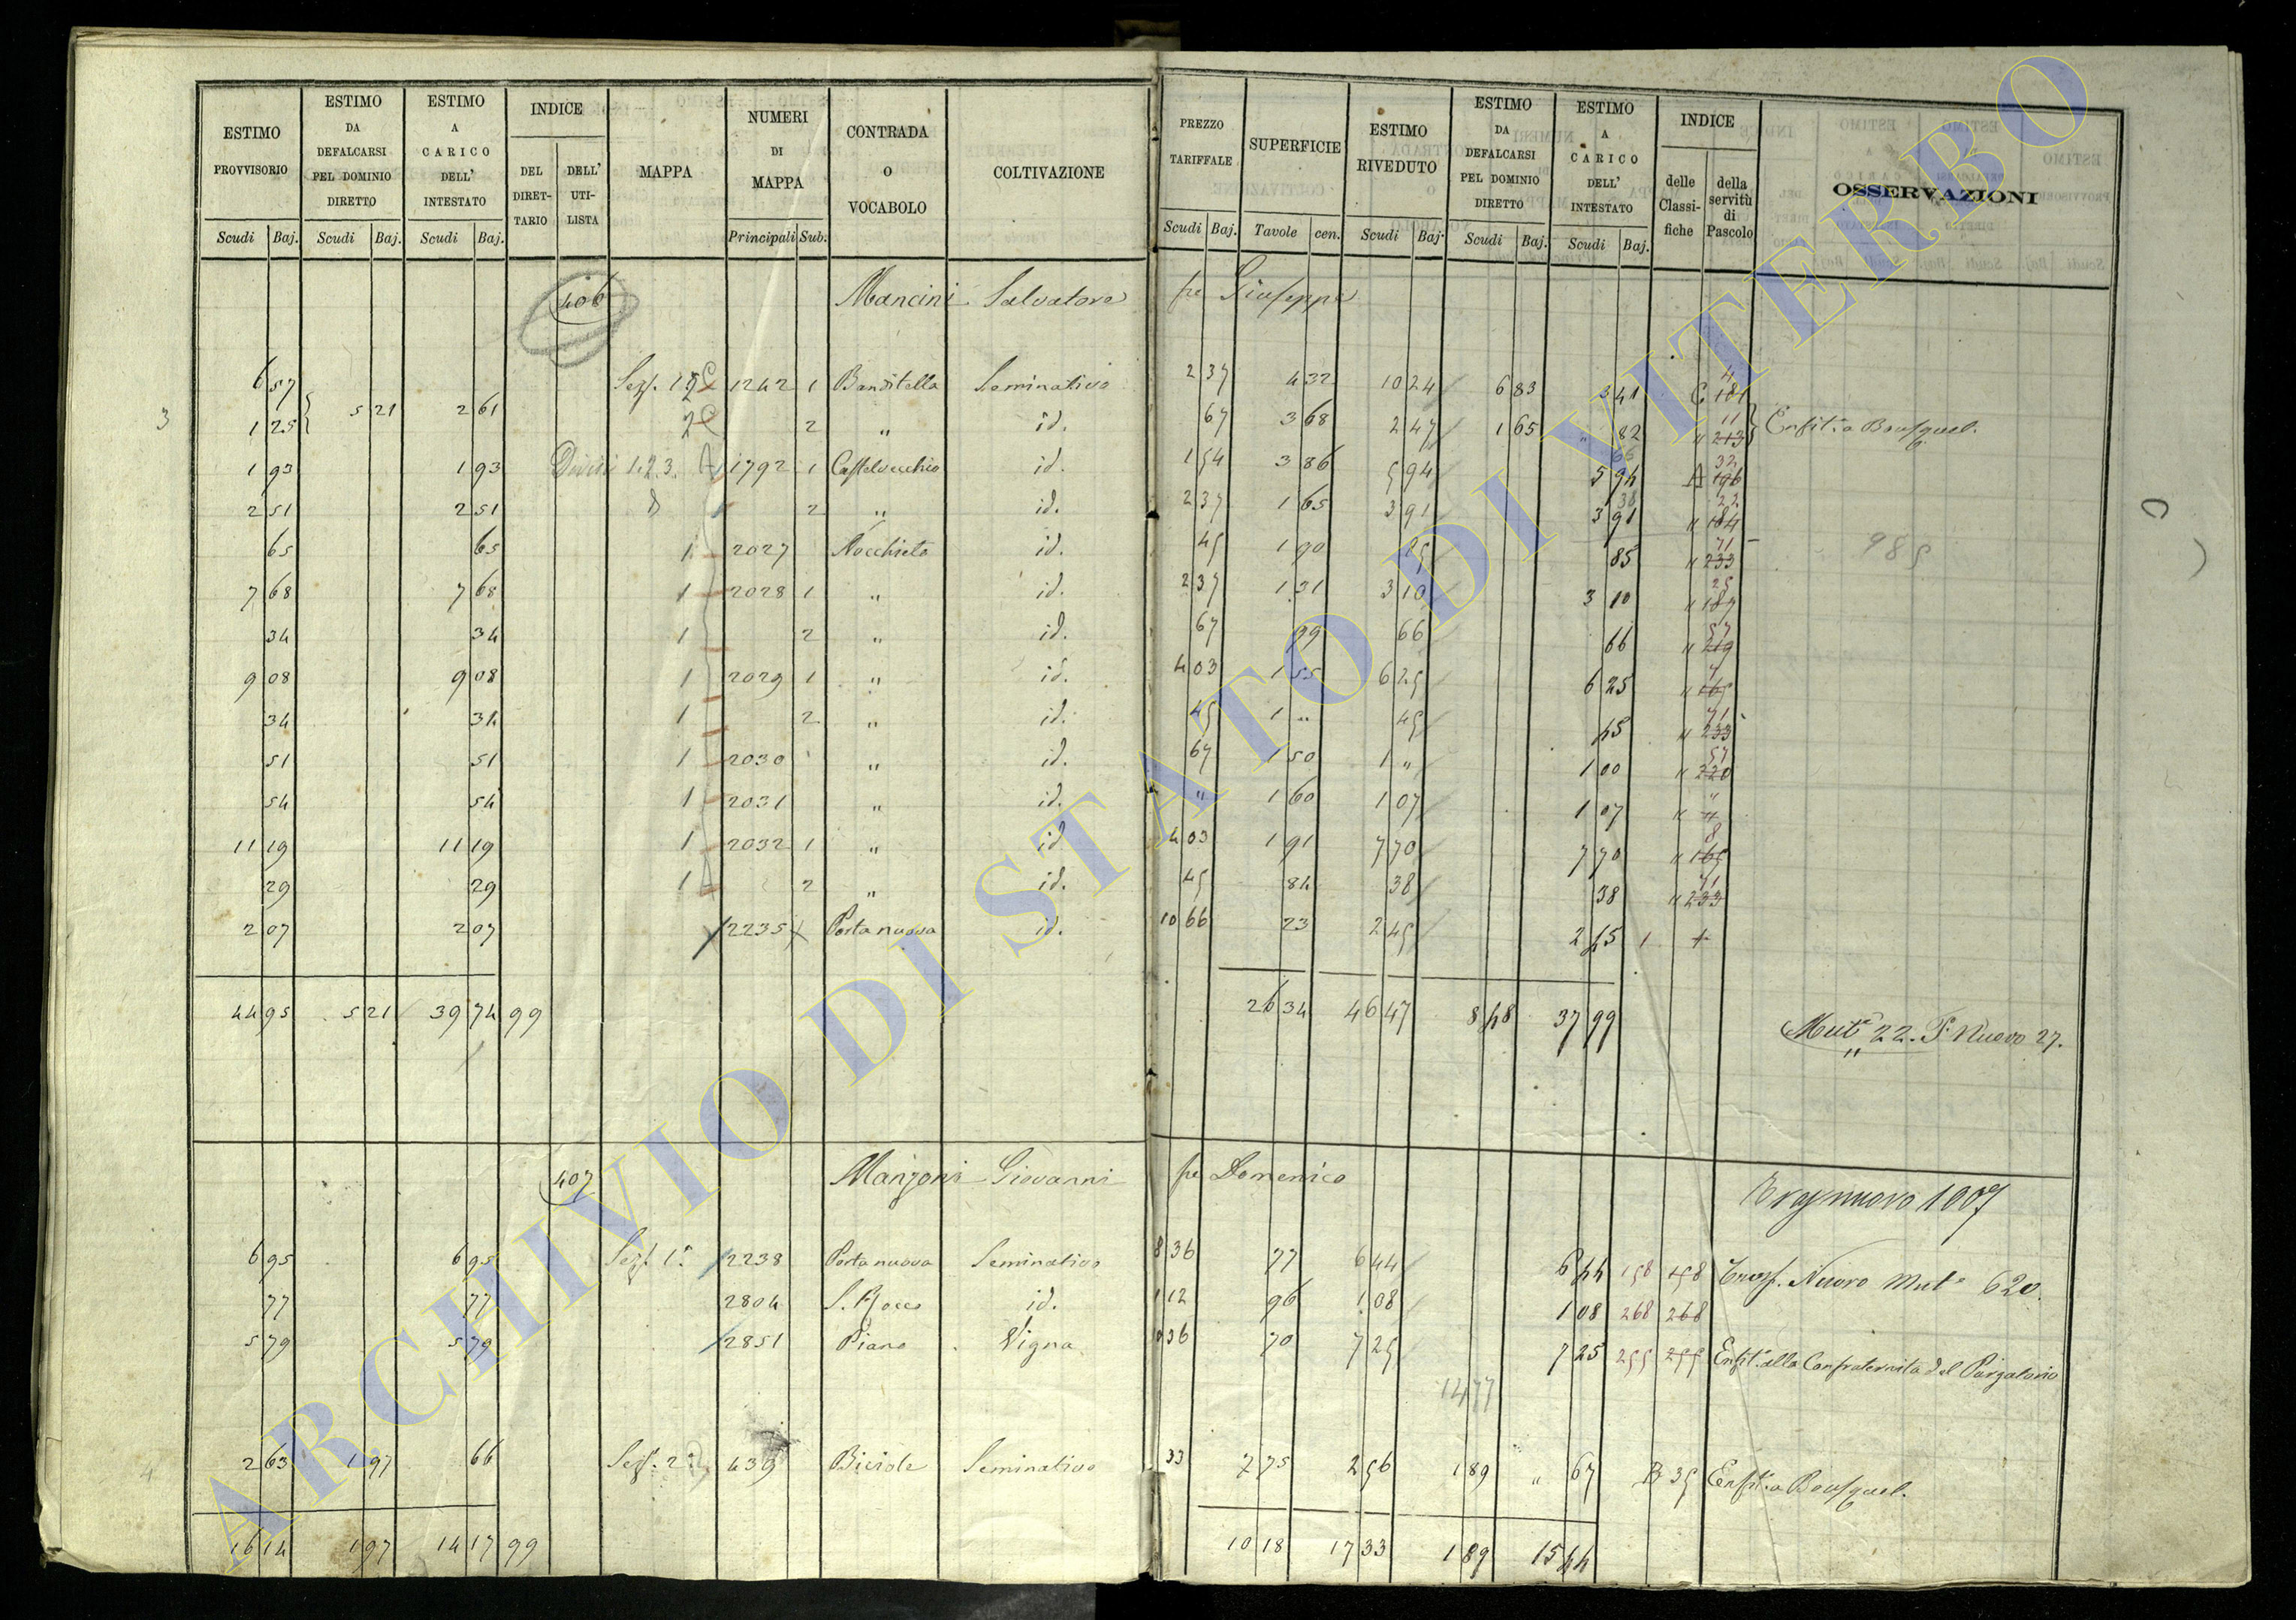 ESTIMO PROVVISORIO | ESTIMO DA DEFALCARSI PEL DOMINIO DIRETTO | ESTIMO A CARICO DELL' INTESTATO | INDICE DEL DIRETTARIO | DELL' UTILISTA | MAPPA | NUMERI DI MAPPA | CONTRADA O VOCABOLO | COLTIVAZIONE | PREZZO TARIFFALE | SUPERFICIE | ESTIMO RIVEDUTO | ESTIMO DA DEFALCARSI PEL DOMINIO DIRETTO | ESTIMO A CARICO DELL' INTESTATO | INDICE delle Classifiche | della servitù di Pascolo | OSSERVAZIONI
Scudi Baj. | Scudi Baj. | Scudi Baj. | Principali Sub. | Scudi Baj. | Tavole cen. | Scudi Baj. | Scudi Baj. | Scudi Baj.
406 Mancini Salvatore fu Giuseppe
6 57 Sez. 1242 1 Banditella Seminativo 2 37 4 32 10 24 6 83 3 41 C
3 1 25 5 21 2 61 2 " id. 67 3 68 2 47 1 65 " 82 " 213 11 Enfit. a Bousquel.
1 93 1 93 Divisi 1.2.3. 1792 1 Castelvecchio id. 1 54 3 86 5 94 5 94 A 196 32
2 51 2 51 2 " id. 2 37 1 65 3 91 3 91 " 184 22
65 65 1 2027 Nocchieto id. 45 1 90 85 85 " 233 71 985
7 68 7 68 1 2028 1 " id. 2 37 1 31 3 10 3 10 " 187 25
34 34 1 2 " id. 67 99 66 66 " 219 57
9 08 9 08 1 2029 1 " id. 4 03 1 55 6 25 6 25 " 165
34 34 1 2 " id. 45 1 " 45 45 " 233 71
51 51 1 2030 " id. 67 1 50 1 " 1 00 " 220 57
54 54 1 2031 " id. " 1 60 1 07 1 07 " "
11 19 11 19 1 2032 1 " id. 4 03 1 91 7 70 7 70 " 165 8
29 29 1 2 " id. 45 84 38 38 " 233 71
2 07 2 07 2235 Porta nuova id. 10 66 23 2 45 2 45
44 95 5 21 39 74 99 26 34 46 47 8 48 37 99
Mut. 22. P. Nuovo 27.
407 Manzoni Giovanni fu Domenico
nuovo 1007
6 95 6 95 Sez. 1ª 2238 Porta nuova Seminativo 8 36 77 6 44 6 44 158 158 Trasp. Nuovo Mut. 620.
77 77 2804 S. Rocco id. 1 12 96 1 08 1 08 268 268
5 79 5 79 2851 Piano Vigna 36 70 7 25 7 25 255 255 Enfit. alla Confraternita del Purgatorio
1477
4 2 63 1 97 66 Sez. 2ª 439 Seminativo 33 7 75 2 56 1 89 " 67 B 35 Enfit. a Bousquel.
16 14 1 97 14 17 99 10 18 17 33 1 89 15 44
ARCHIVIO DI STATO DI VITERBO